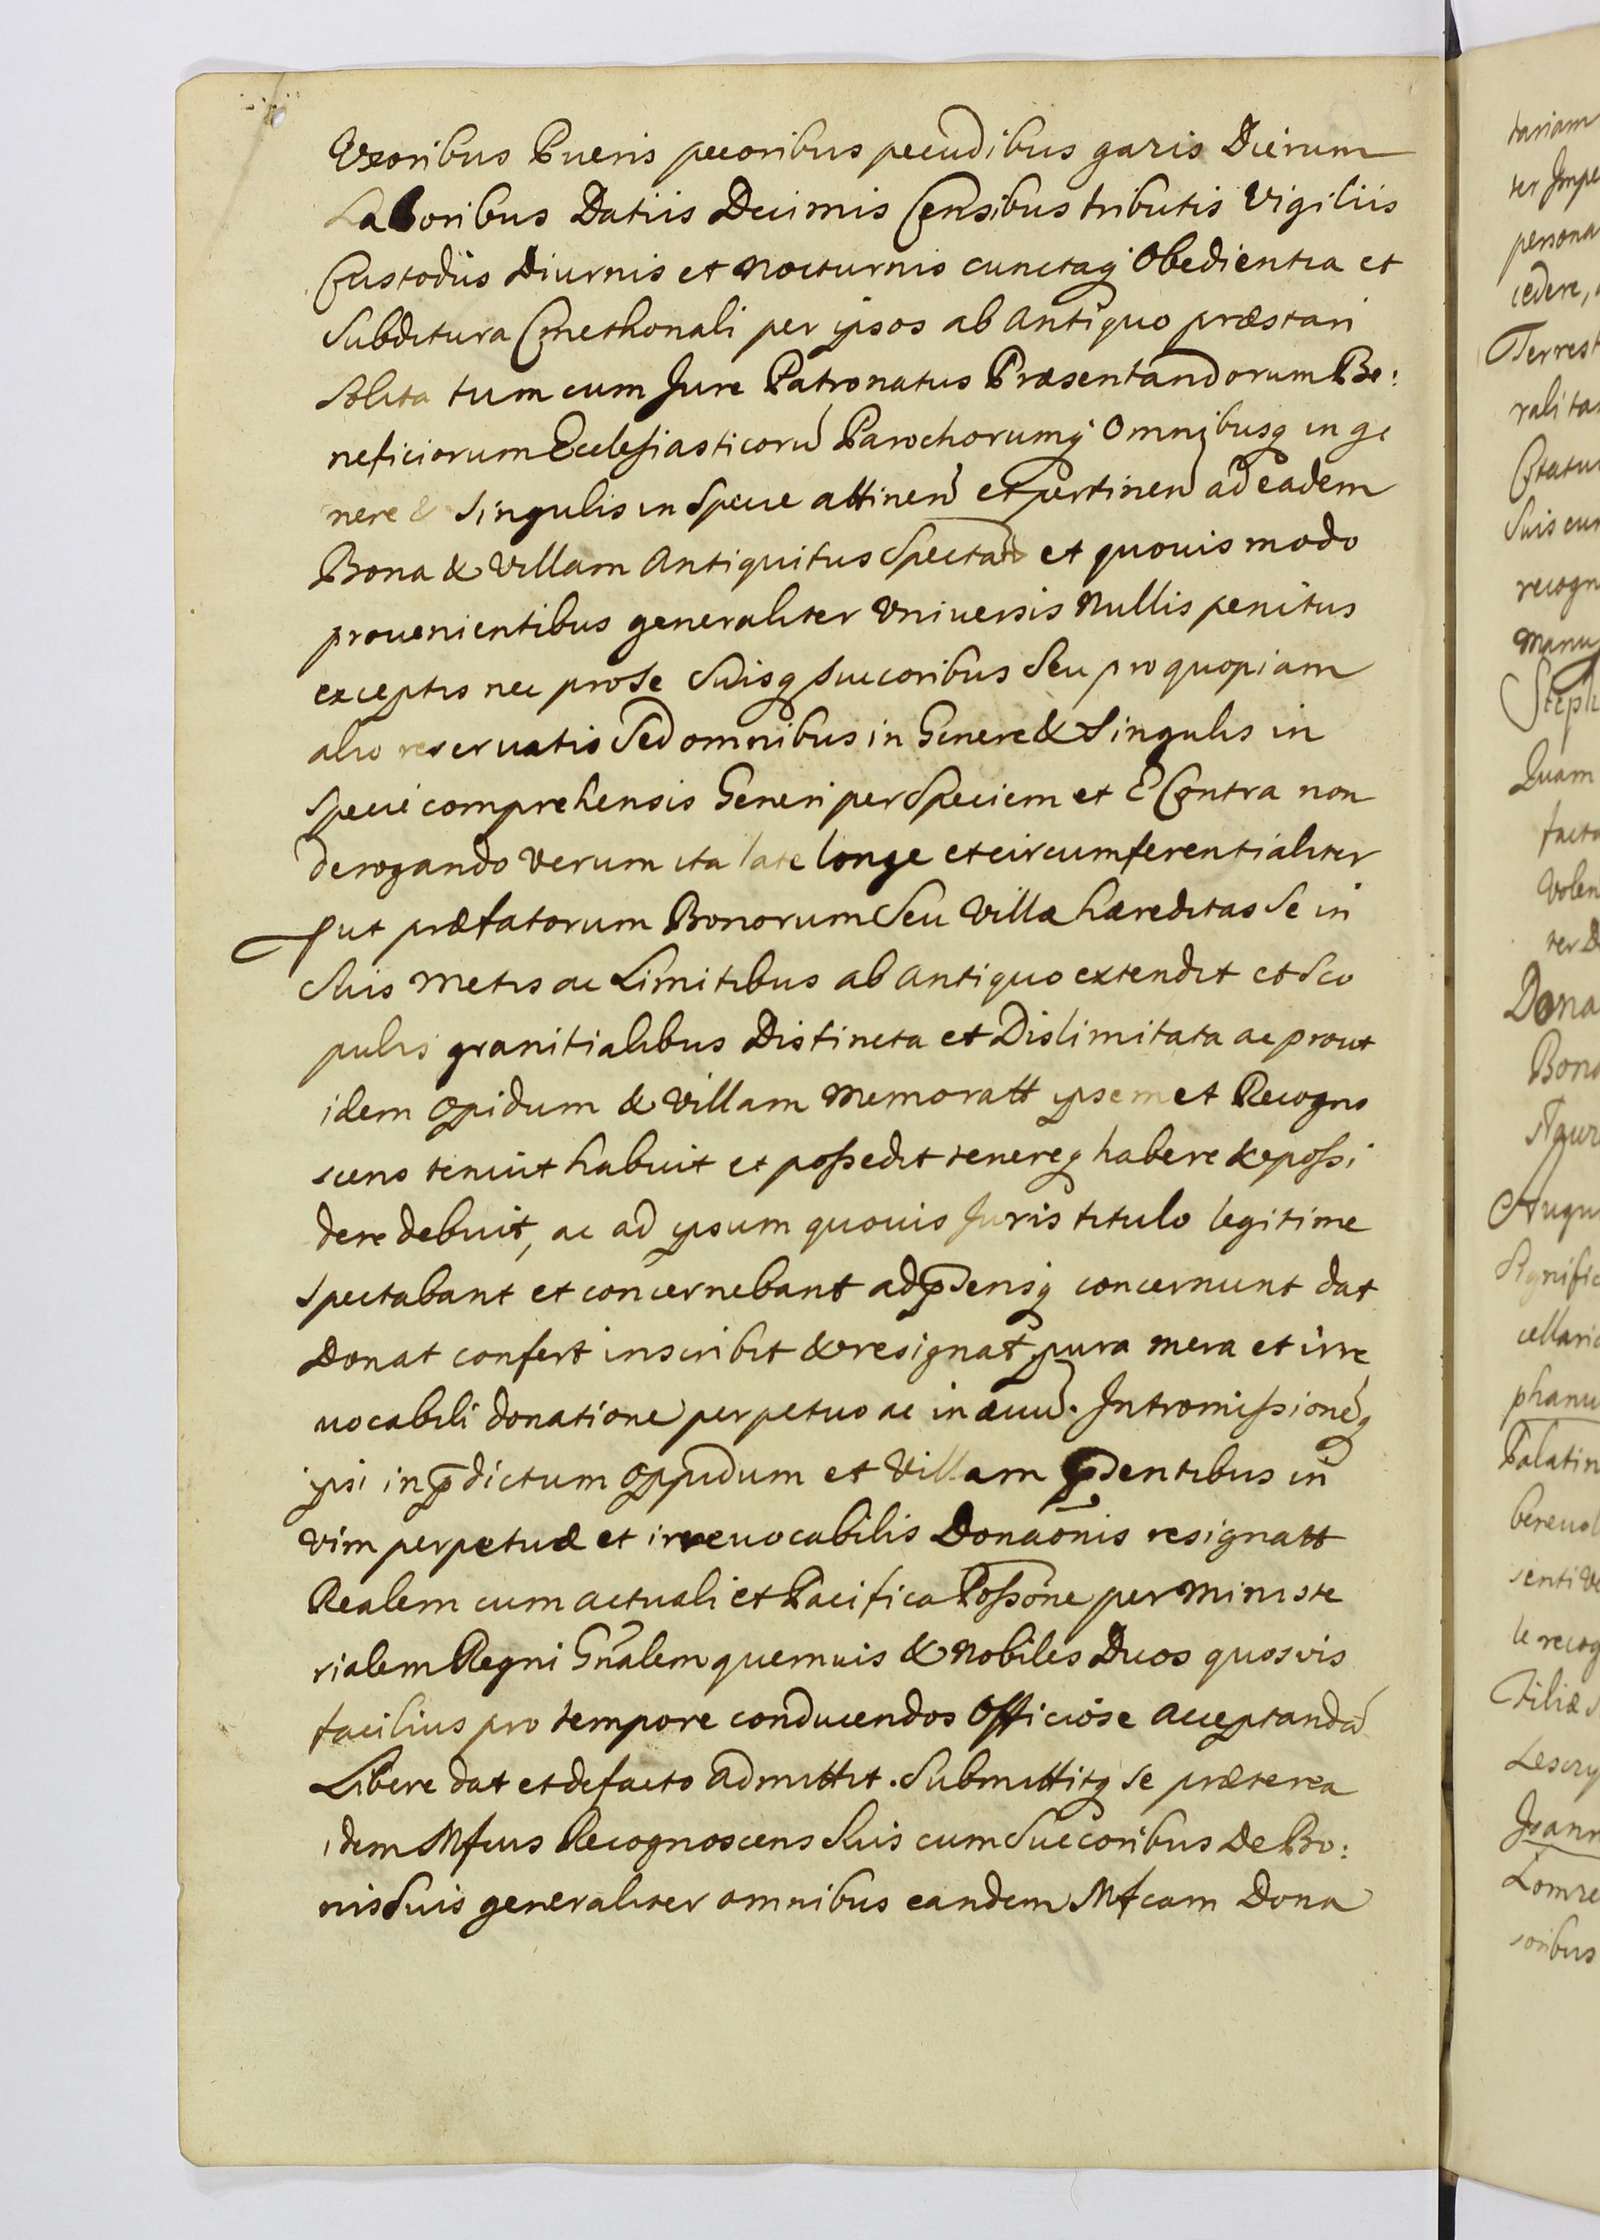 Uxoribus Pueris pecoribus pecudibus gazis Dierum
Laboribus Datiis Decimis Censibus tributis Vigiliis
Custodiis Diurnis et Nocturnis cunctaq Obedientia et
Subditura Cmethonali per ipsos ab Antiquo præstari
Solita tum cum Jure Patronatus Præsentandorum Be:
neficiorum Ecclesiasticorũ Parochorumq Omnibusq in ge
nere & Singulis in Specie attinen et pertinen ad eadem
Bona & Villam Antiquitus Spectan et quouis modo
prouenientibus generaliter Vniuersis Nullis penitus
exceptis nec pro Se Suisq Succoribus Seu pro quopiam
alio reseruatis Sed omnibus in Genere & Singulis in
Specie comprehensis Generi per Speciem et E Contra non
derogando Verum ita late longe et circumferentialiter
put præfatorum Bonorum Seu Villæ hæreditas Se in
Suis Metis ac Limitibus ab antiquo extendit et Sco
pulis granitialibus Distincta et Dislimitata ac prout
idem Opidum & Villam Memoratt ipsemet Recogno
scens tenuit habuit et possedit tenereq habere & possi
dere debuit, ac ad ipsum quouis Juris titulo legitime
Spectabant et concernebant ad p̄sensq concernunt dat
Donat confert inscribit & resignat pura mera et irre
uocabili donatione perpetuo ac in æuũ. Intromissionẽq
ipsi in p̄dictum Oppidum et Villam p̄sentibus in
Vim perpetuæ et irreuocabilis Donaõnis resignatt
Realem cum actuali et Pacifica Possõne per Ministe
rialem Regni Gñalem quemuis & Nobiles Duos quosvis
facilius pro tempore conducendos Officiose acceptandã
Libere dat et de facto admittit. Submittitq Se præterea
idem Mfcus Recognoscens Suis cum Succoribus De Bo:
nis Suis generaliter omnibus eandem Mfcam Dona